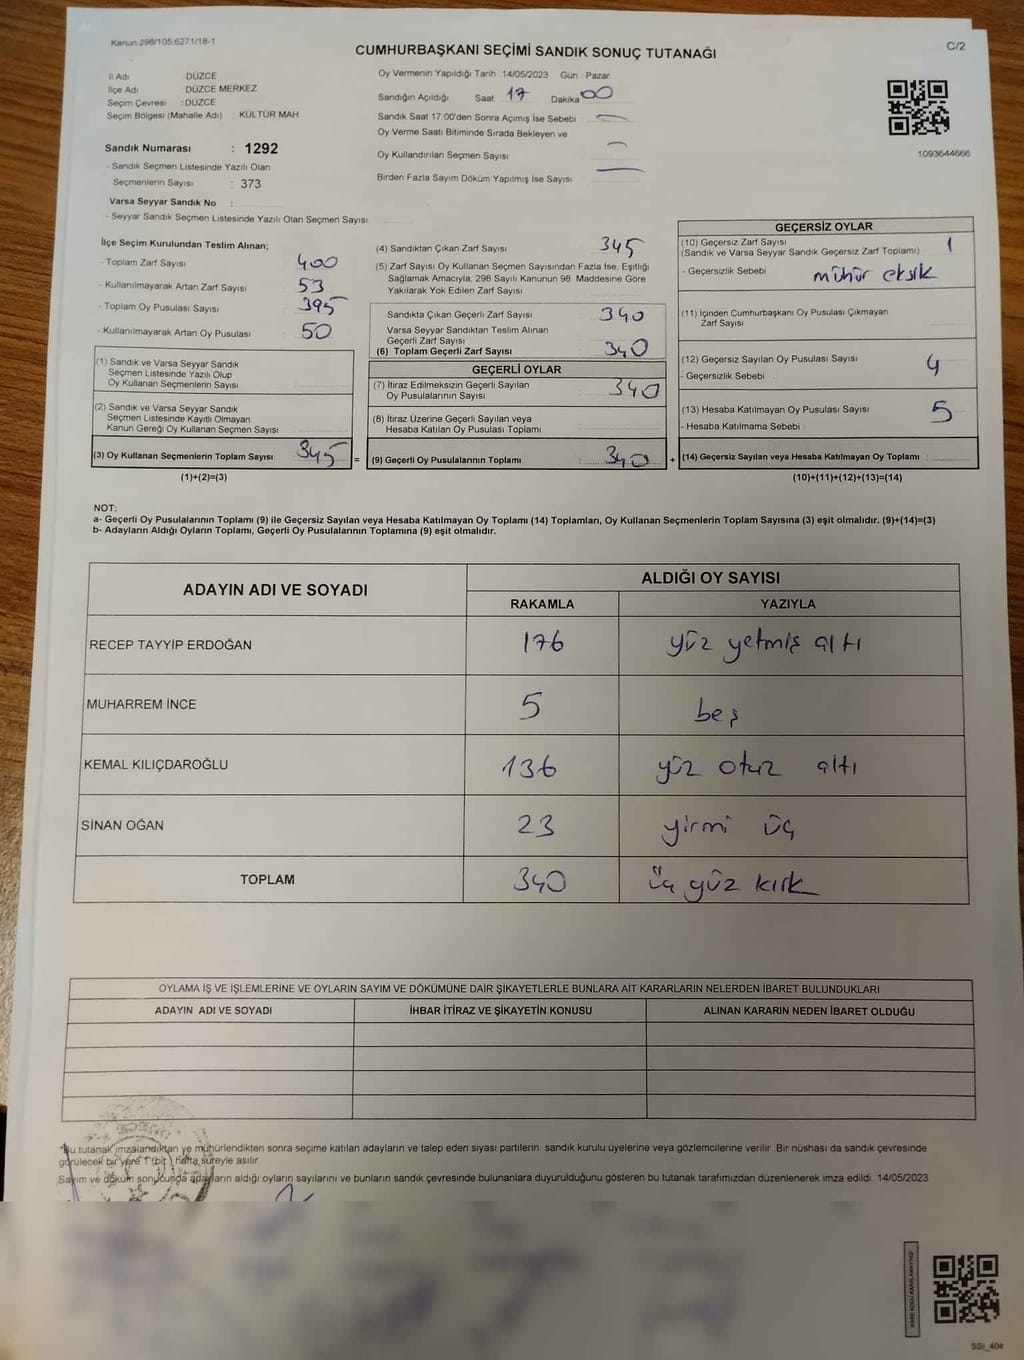 Kanun:298/105;6271/18-1
C/2
CUMHURBAŞKANI SEÇİMİ SANDIK SONUÇ TUTANAĞI
İl Adı DÜZCE
İlçe Adı : DÜZCE MERKEZ
Seçim Çevresi : DÜZCE
Seçim Bölgesi (Mahalle Adı) : KÜLTÜR MAH
Oy Vermenin Yapıldığı Tarih :14/05/2023 Gün : Pazar
Sandığın Açıldığı Saat 17 Dakika 00
Sandık Saat 17:00'den Sonra Açımış İse Sebebi —
Oy Verme Saati Bitiminde Sırada Bekleyen ve
Oy Kullandırılan Seçmen Sayısı —
Birden Fazla Sayım Döküm Yapılmış İse Sayısı —
1093644666
Sandık Numarası : 1292
- Sandık Seçmen Listesinde Yazılı Olan
Seçmenlerin Sayısı : 373
Varsa Seyyar Sandık No :
- Seyyar Sandık Seçmen Listesinde Yazılı Olan Seçmen Sayısı
İlçe Seçim Kurulundan Teslim Alınan;
- Toplam Zarf Sayısı 400
- Kullanılmayarak Artan Zarf Sayısı 53
- Toplam Oy Pusulası Sayısı 395
- Kullanılmayarak Artan Oy Pusulası 50
(1) Sandık ve Varsa Seyyar Sandık
Seçmen Listesinde Yazılı Olup
Oy Kullanan Seçmenlerin Sayısı
(2) Sandık ve Varsa Seyyar Sandık
Seçmen Listesinde Kayıtlı Olmayan
Kanun Gereği Oy Kullanan Seçmen Sayısı
(3) Oy Kullanan Seçmenlerin Toplam Sayısı 345 =
(1)+(2)=(3)
(4) Sandıktan Çıkan Zarf Sayısı 345
(5) Zarf Sayısı Oy Kullanan Seçmen Sayısından Fazla İse, Eşitliği
Sağlamak Amacıyla; 298 Sayılı Kanunun 98. Maddesine Göre
Yakılarak Yok Edilen Zarf Sayısı
Sandıkta Çıkan Geçerli Zarf Sayısı 340
Varsa Seyyar Sandıktan Teslim Alınan
Geçerli Zarf Sayısı
(6) Toplam Geçerli Zarf Sayısı 340
GEÇERLİ OYLAR
(7) İtiraz Edilmeksizin Geçerli Sayılan
Oy Pusulalarının Sayısı 340
(8) İtiraz Üzerine Geçerli Sayılan veya
Hesaba Katılan Oy Pusulası Toplamı
(9) Geçerli Oy Pusulalarının Toplamı 340 +
GEÇERSİZ OYLAR
(10) Geçersiz Zarf Sayısı 1
(Sandık ve Varsa Seyyar Sandık Geçersiz Zarf Toplamı)
- Geçersizlik Sebebi mühür eksik
(11) İçinden Cumhurbaşkanı Oy Pusulası Çıkmayan
Zarf Sayısı
(12) Geçersiz Sayılan Oy Pusulası Sayısı 4
- Geçersizlik Sebebi
(13) Hesaba Katılmayan Oy Pusulası Sayısı 5
- Hesaba Katılmama Sebebi
(14) Geçersiz Sayılan veya Hesaba Katılmayan Oy Toplamı
(10)+(11)+(12)+(13)=(14)
NOT:
a- Geçerli Oy Pusulalarının Toplamı (9) ile Geçersiz Sayılan veya Hesaba Katılmayan Oy Toplamı (14) Toplamları, Oy Kullanan Seçmenlerin Toplam Sayısına (3) eşit olmalıdır. (9)+(14)=(3)
b- Adayların Aldığı Oyların Toplamı, Geçerli Oy Pusulalarının Toplamına (9) eşit olmalıdır.
ADAYIN ADI VE SOYADI ALDIĞI OY SAYISI
RAKAMLA YAZIYLA
RECEP TAYYİP ERDOĞAN 176 yüz yetmiş altı
MUHARREM İNCE 5 beş
KEMAL KILIÇDAROĞLU 136 yüz otuz altı
SİNAN OĞAN 23 yirmi üç
TOPLAM 340 üç yüz kırk
OYLAMA İŞ VE İŞLEMLERİNE VE OYLARIN SAYIM VE DÖKÜMÜNE DAİR ŞİKAYETLERLE BUNLARA AİT KARARLARIN NELERDEN İBARET BULUNDUKLARI
ADAYIN ADI VE SOYADI İHBAR İTİRAZ VE ŞİKAYETİN KONUSU ALINAN KARARIN NEDEN İBARET OLDUĞU
*Bu tutanak imzalandıktan ve mühürlendikten sonra seçime katılan adayların ve talep eden siyasi partilerin sandık kurulu üyelerine veya gözlemcilerine verilir. Bir nüshası da sandık çevresinde
görülecek bir yere 1 (bir) hafta süreyle asılır.
Sayım ve döküm sonucunda adayların aldığı oyların sayılarını ve bunların sandık çevresinde bulunanlara duyurulduğunu gösteren bu tutanak tarafımızdan düzenlenerek imza edildi. 14/05/2023
SSt_404